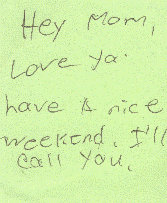 Hey Mom,
Love ya.
have a nice
weekend. I'll
call you.